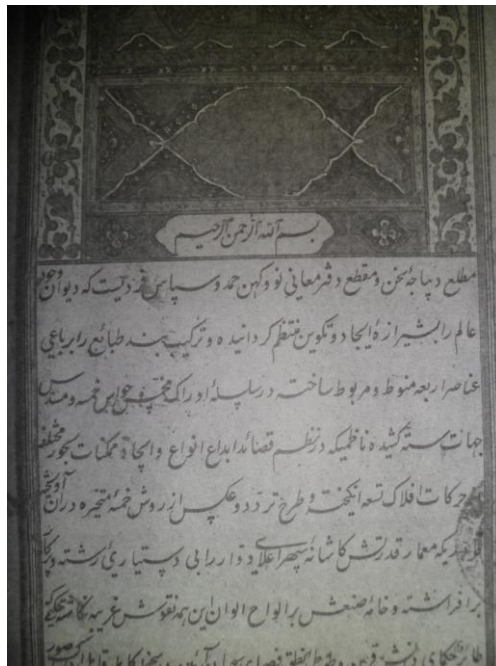 بسم الله الرحمن الرحیم
مطلع دیباچهٔ سخن و مقطع دفتر معانی نو و کهن حمد و سپاس فردیست که دیوان وجود
عالم را بشیرازهٔ ایجاد و تکوین منتظم گردانیده و ترکیب بند طبائع را برباعی
عناصر اربعه منوط و مربوط ساخته در سلسلهٔ ادراک مخمس حواس خمسه و مسدس
جهات سته کشیده ناظمیکه در نظم قصائد ابداع انواع و ایجاد ممکنات بحور مختلفه
حرکات افلاک تسعه انگیخته و طرح تردد و عکس از روش خمسهٔ متحیره در آن آویخته
معمار قدرتش کاشانهٔ سپهر اعلای دوار را بی دستیاری رشته و
برافراشته و خامهٔ صنعش بر الواح الوان این همه نقوش غریبه نگاشته